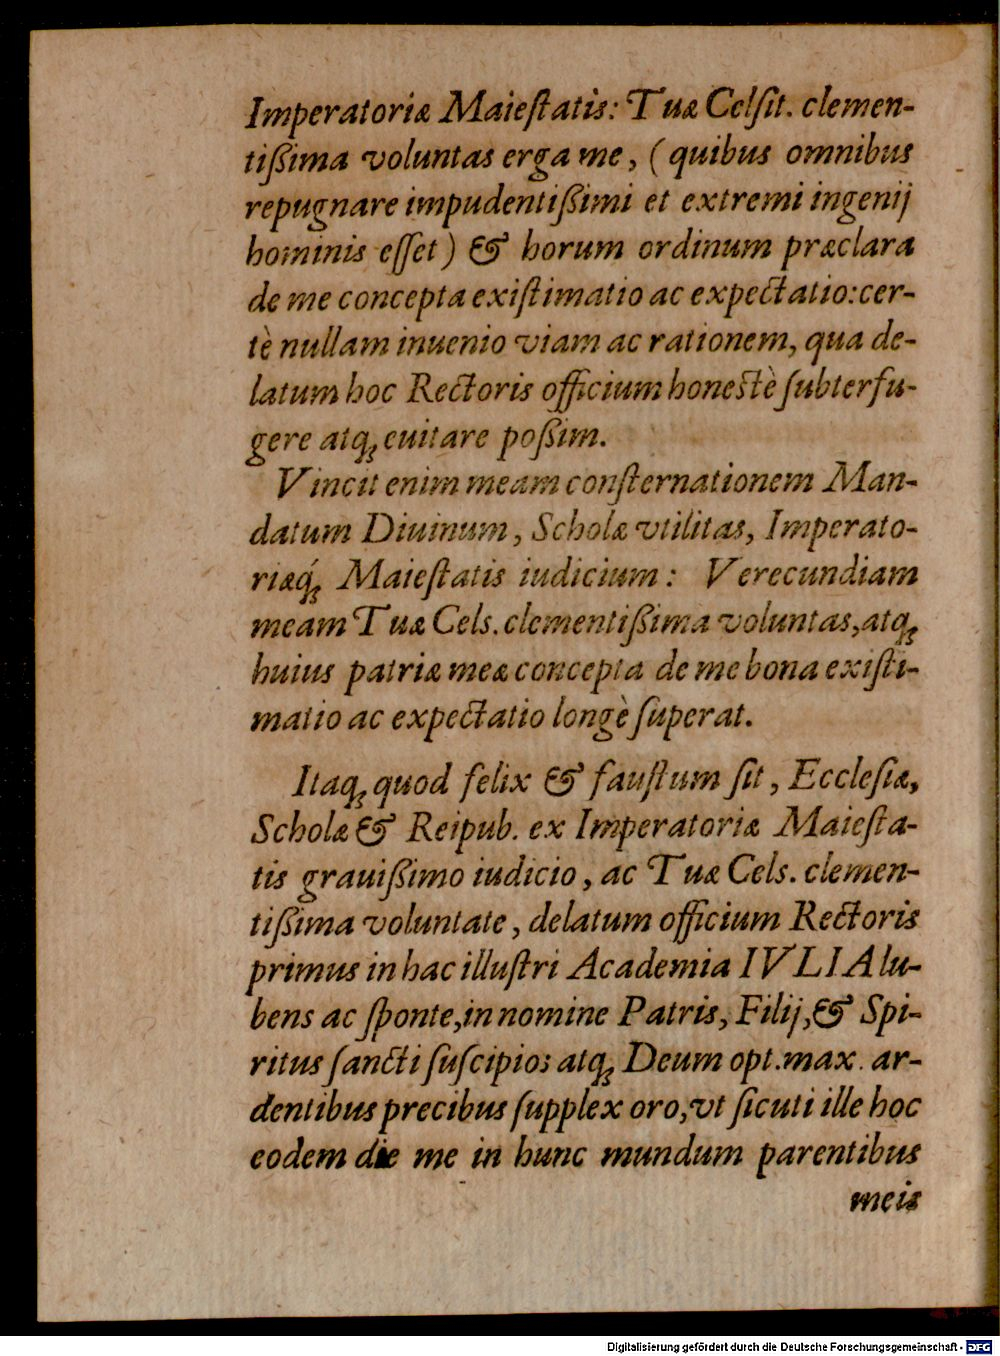 Imperatoriæ Maieſtatis: Tuæ Celſit. clemen-
tißima voluntas erga me, (quibus omnibus
repugnare impudentißimi et extremi ingenij
hominis eſſet) & horum ordinum præclara
de me concepta exiſtimatio ac expectatio: cer-
tè nullam inuenio viam ac rationem, qua de-
latum hoc Rectoris officium honestè ſubterfu-
gere atq; euitare poßim.
Vincit enim meam conſternationem Man-
datum Diuinum, Scholæ vtilitas, Imperato-
riæq́; Maieſtatis iudicium: Verecundiam
meam Tuæ Cels. clementißima voluntas, atq;
huius patriæ meæ concepta de me bona exiſti-
matio ac expectatio longè ſuperat.
Itaq; quod felix & fauſtum ſit, Eccleſiæ,
Scholæ & Reipub. ex Imperatoriæ Maieſta-
tis grauißimo iudicio, ac Tuæ Cels. clemen-
tißima voluntate, delatum officium Rectoris
primus in hac illuſtri Academia IVLIA lu-
bens ac ſponte, in nomine Patris, Filij, & Spi-
ritus ſancti ſuſcipio: atq; Deum opt. max. ar-
dentibus precibus ſupplex oro, vt ſicuti ille hoc
eodem die me in hunc mundum parentibus
meis
Digitalisierung gefördert durch die Deutsche Forschungsgemeinschaft - DFG